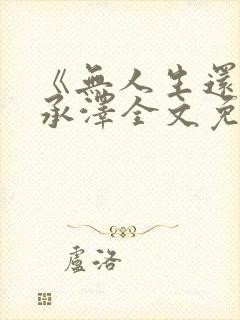 《無人生還
承澤全文免
盧洛